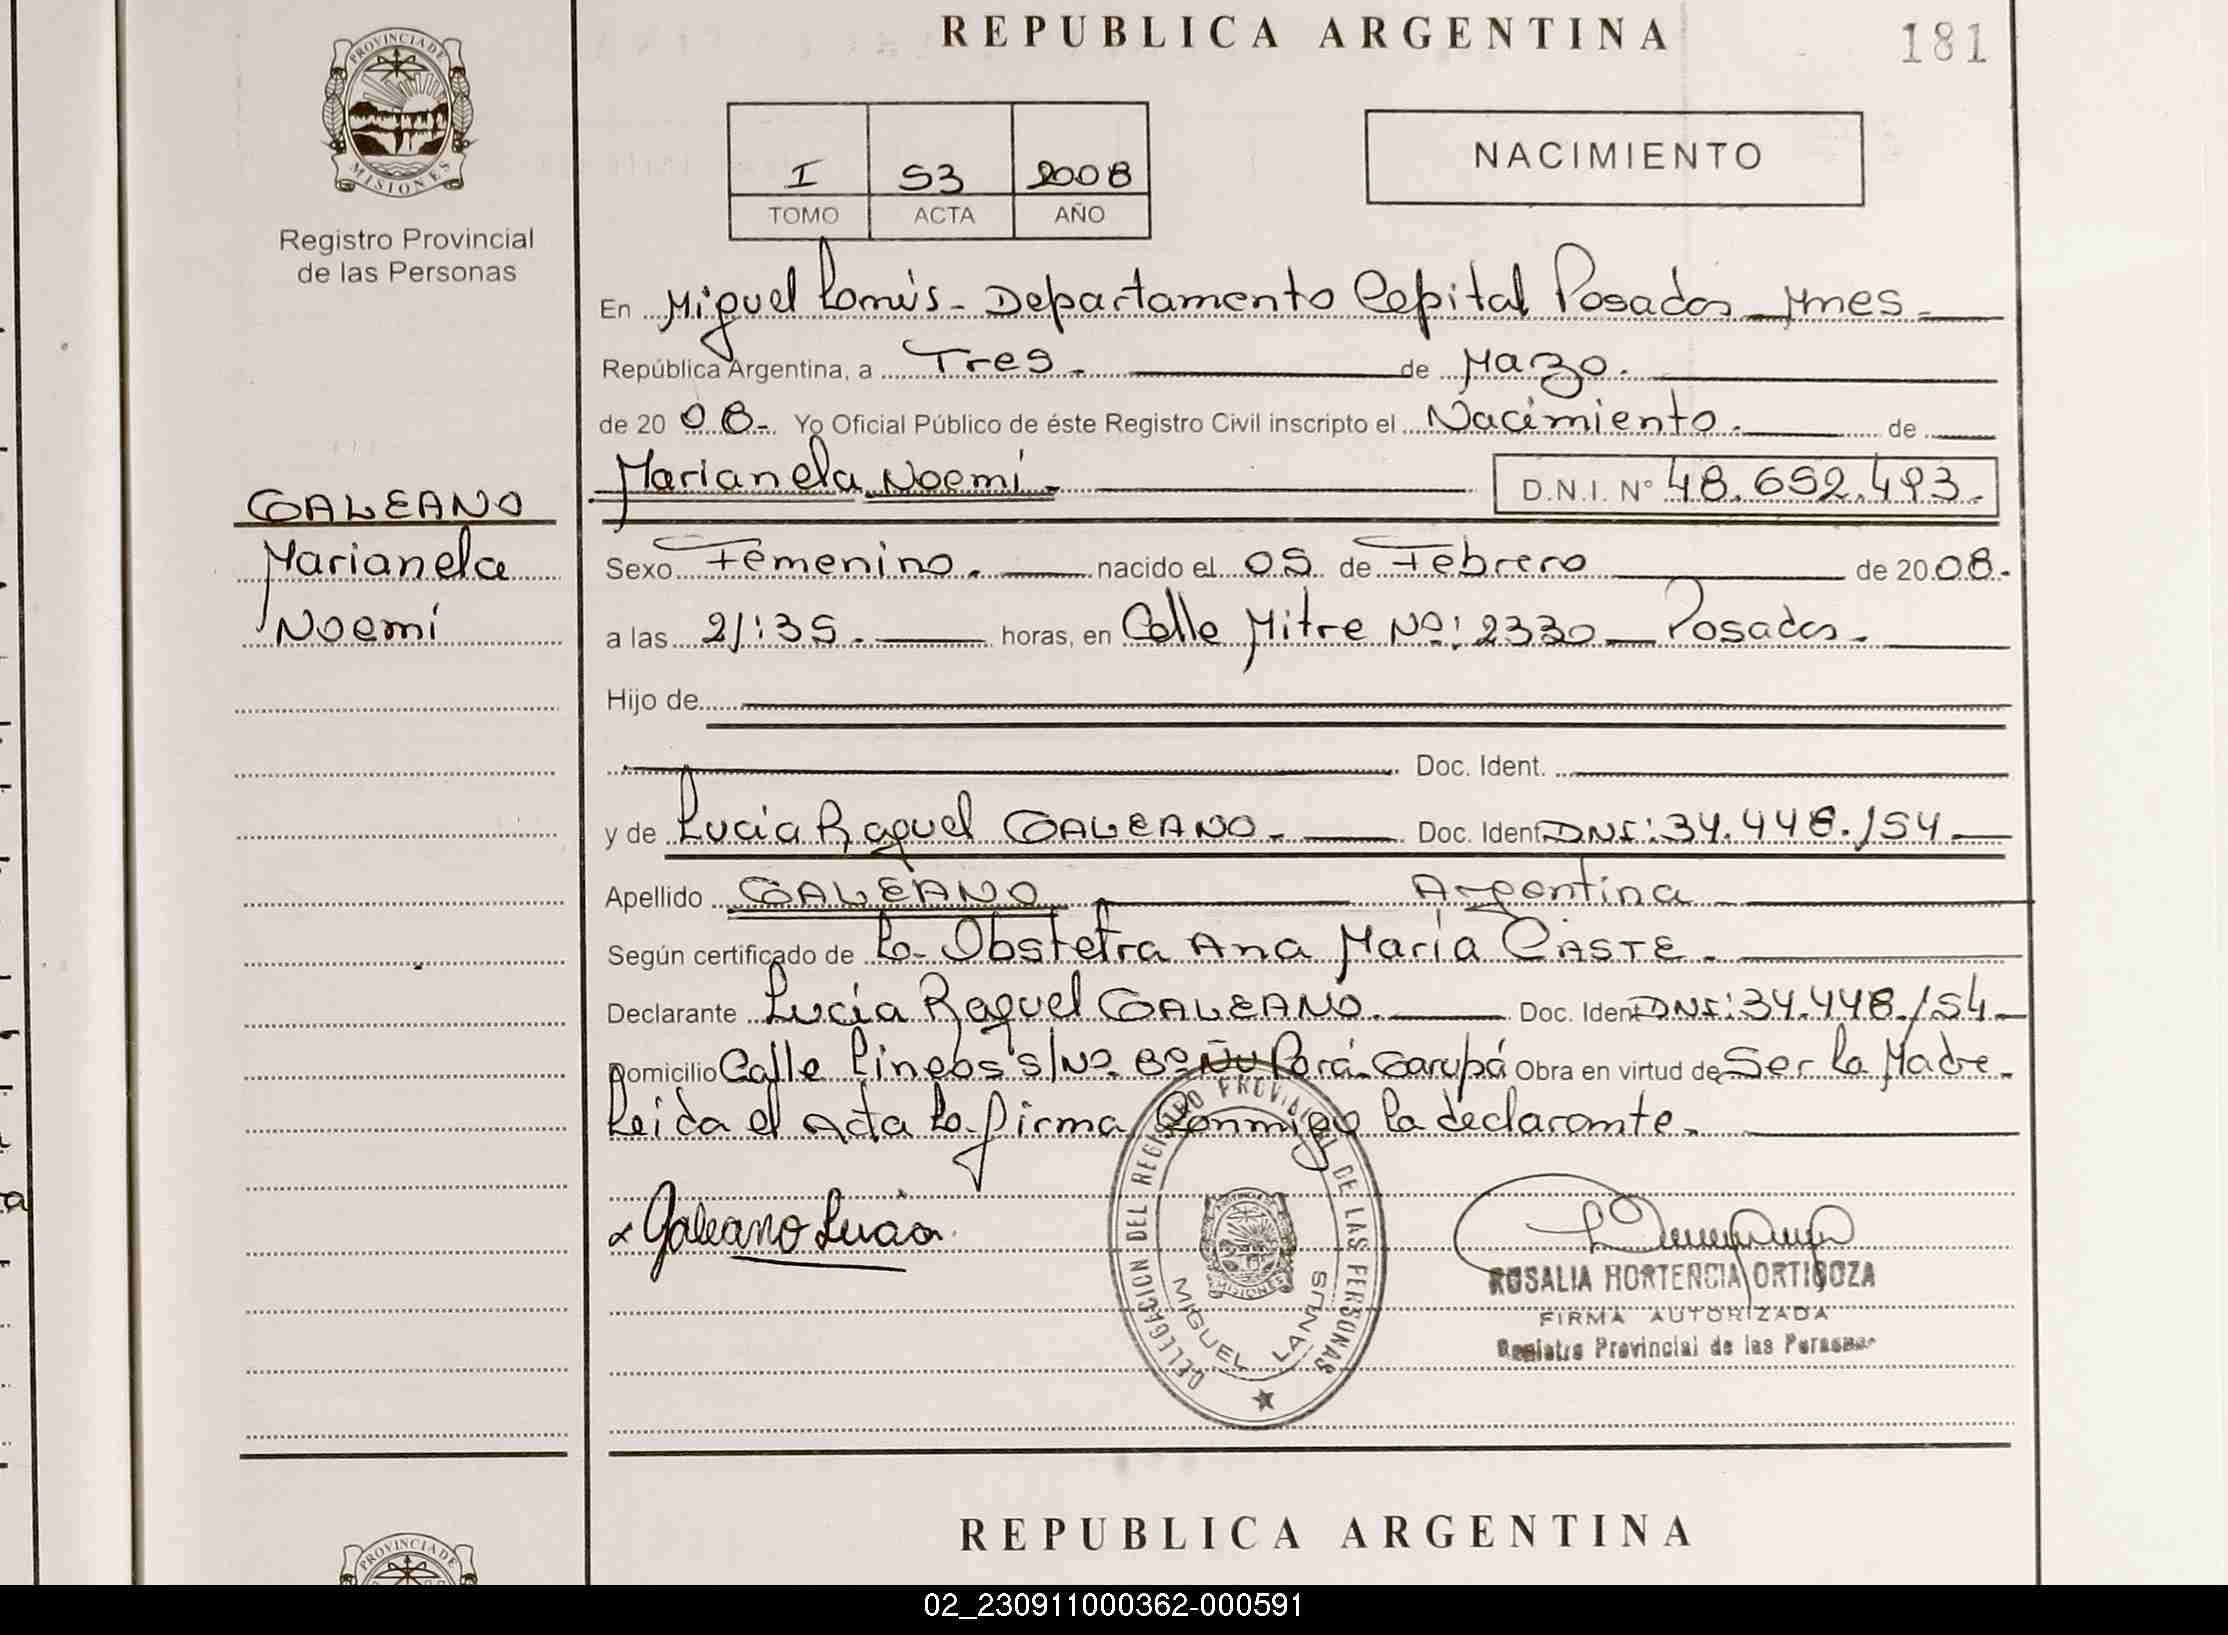 REPUBLICA ARGENTINA
181
PROVINCIA DE
MISIONES
Registro Provincial
de las Personas
I 53 2008
TOMO ACTA AÑO
NACIMIENTO
En Miguel Lanús - Departamento Capital Posadas - Mnes -
República Argentina, a Tres. de Mazo.
de 20 08. Yo Oficial Público de éste Registro Civil inscripto el Nacimiento. de
Marianela Noemí - D.N.I. Nº 48.652.493.
GALEANO
Marianela
Noemí
Sexo Femenino. nacido el 05 de Febrero de 20 08.
a las 21:35. horas, en Calle Mitre Nº: 2330 - Posadas.
Hijo de
Doc. Ident.
y de Lucia Raquel GALEANO. Doc. Ident. DNI: 34.448.154.
Apellido GALEANO Argentina
Según certificado de la Obstetra Ana María CASTE.
Declarante Lucía Raquel GALEANO. Doc. Ident. DNI: 34.448.154.
Domicilio Calle s/Nº Bº Ñu Porá - Garupá Obra en virtud de Ser la Madre.
Leida el Acta la firma Conmigo la declarante.
x Galeano Lucia
DELEGACION DEL REGISTRO PROVINCIAL DE LAS PERSONAS
MIGUEL LANUS
MISIONES
ROSALIA HORTENCIA ORTIGOZA
FIRMA AUTORIZADA
Registro Provincial de las Personas
REPUBLICA ARGENTINA
PROVINCIA DE
02_230911000362-000591